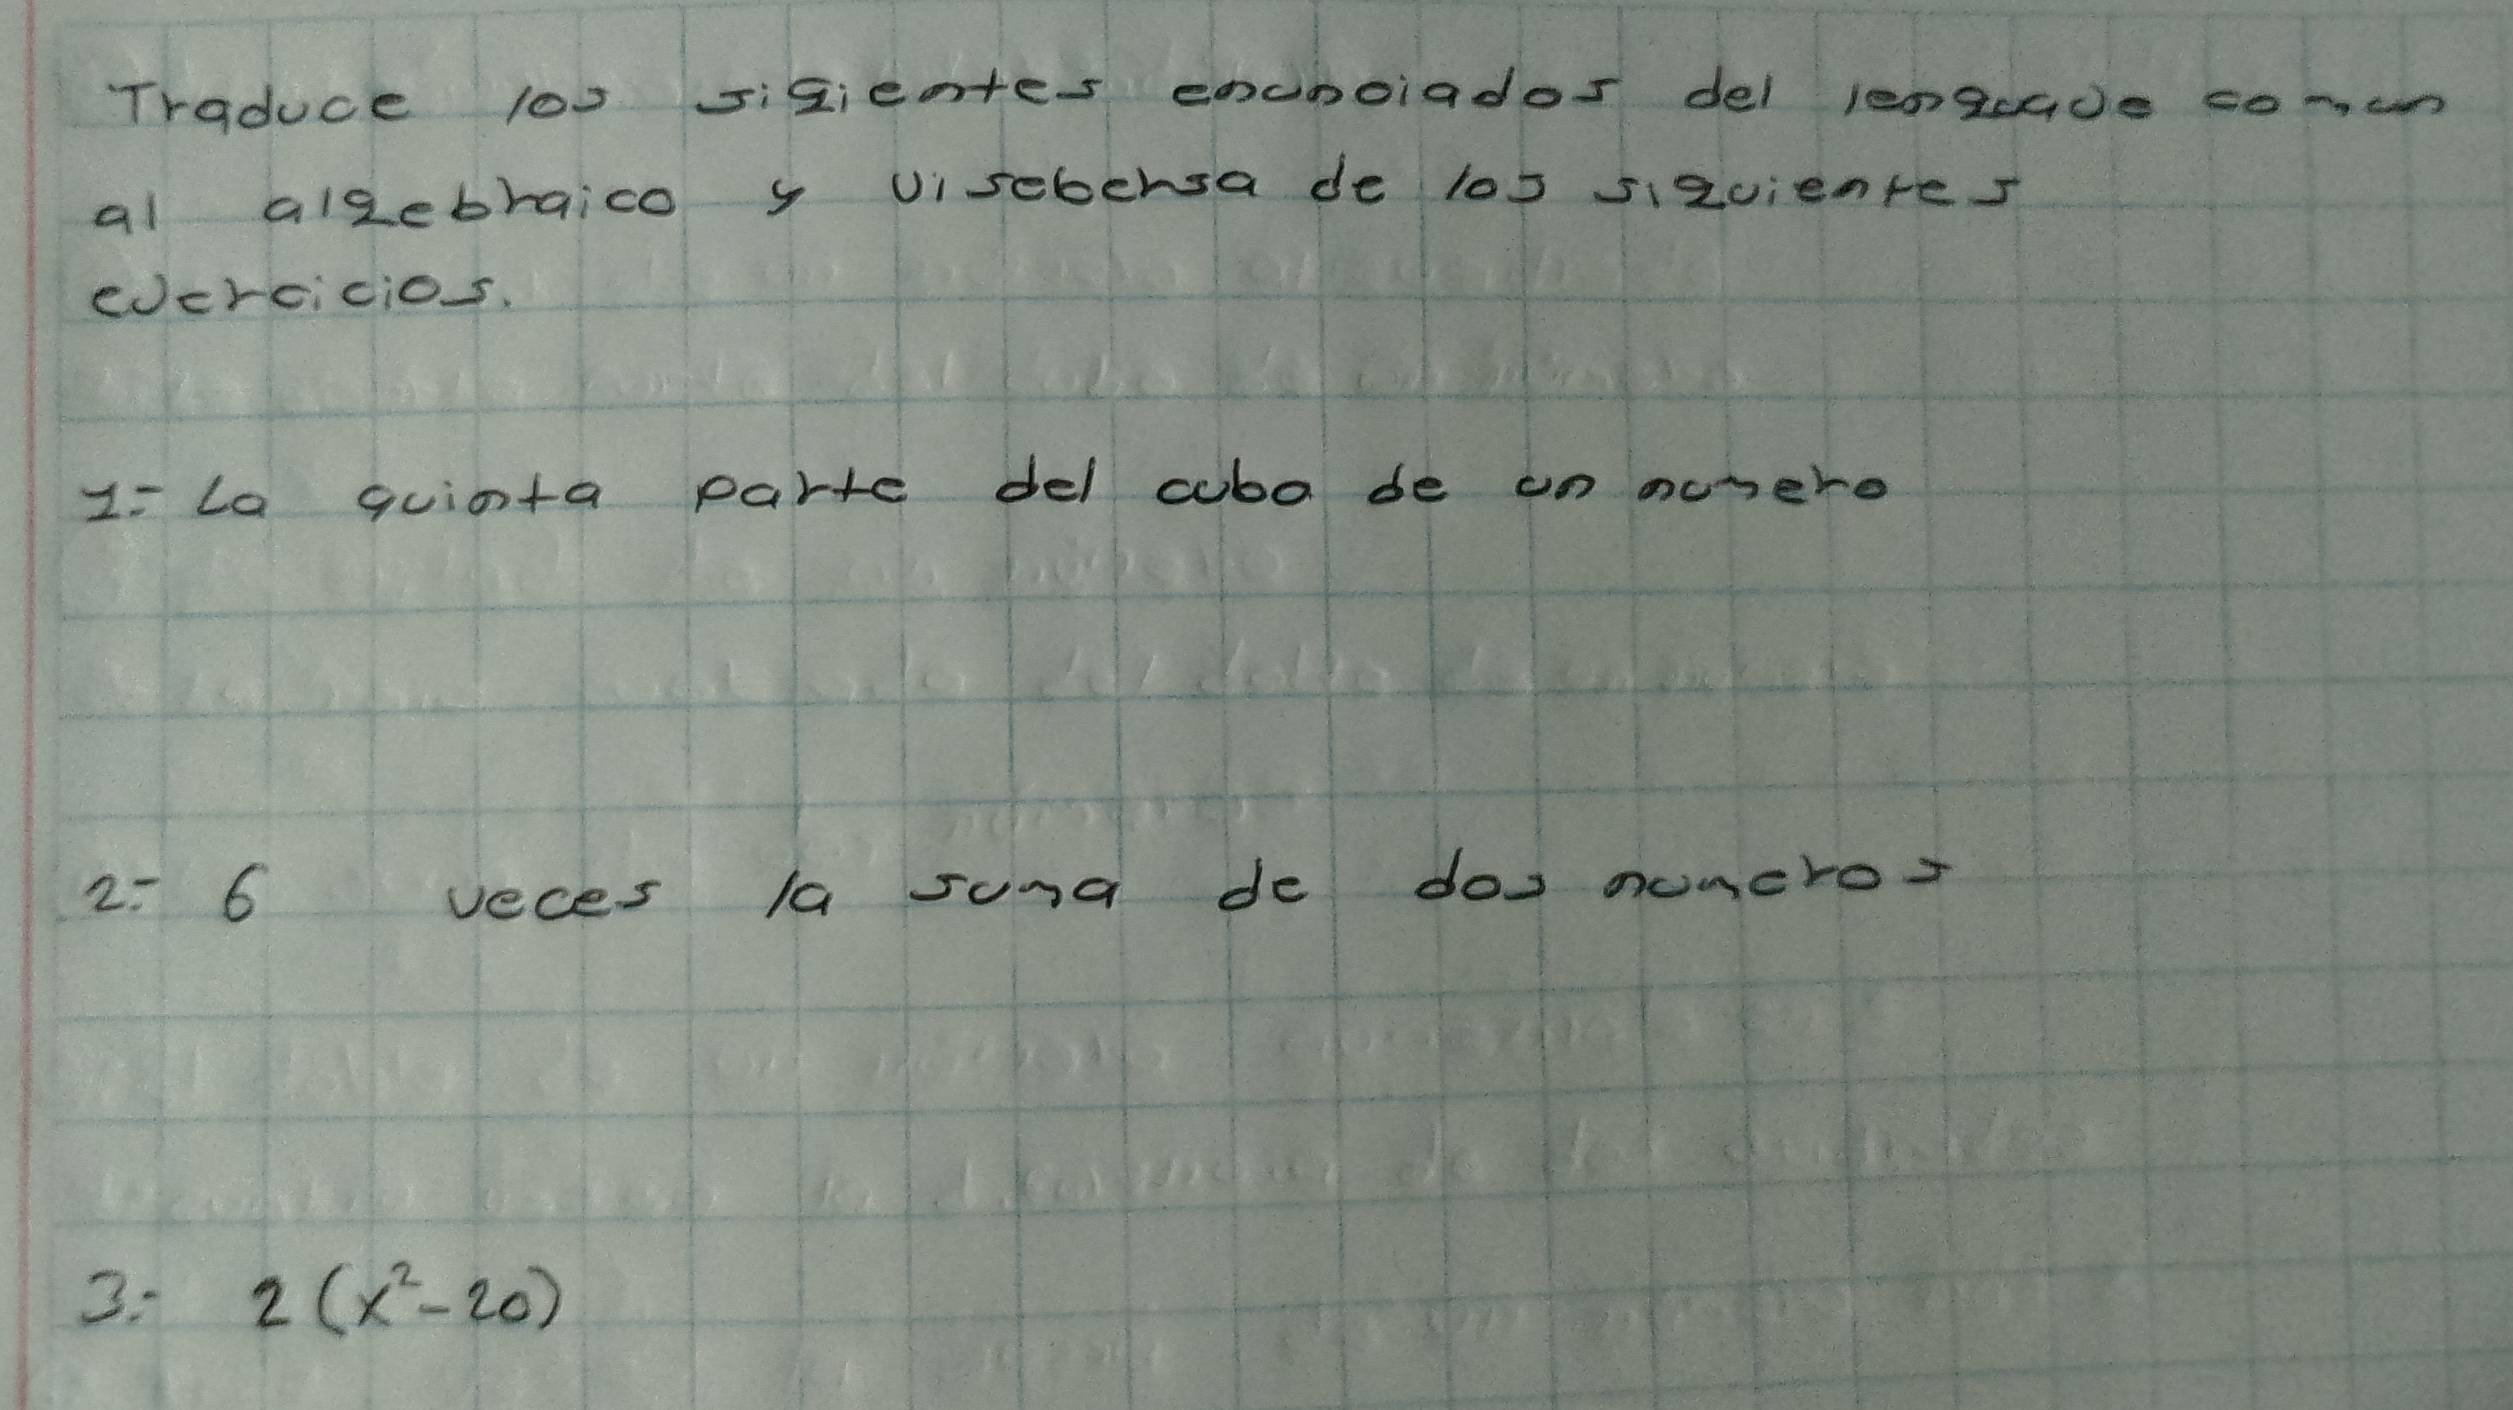 Traduce los sigientes enunciados del lenguaje comun
al algebraico y visebersa de los siguientes
ejercicios.
1=- La quinta parte del cubo de un numero
2=- 6 veces la suma de dos numeros
3.- 2(x²-20)